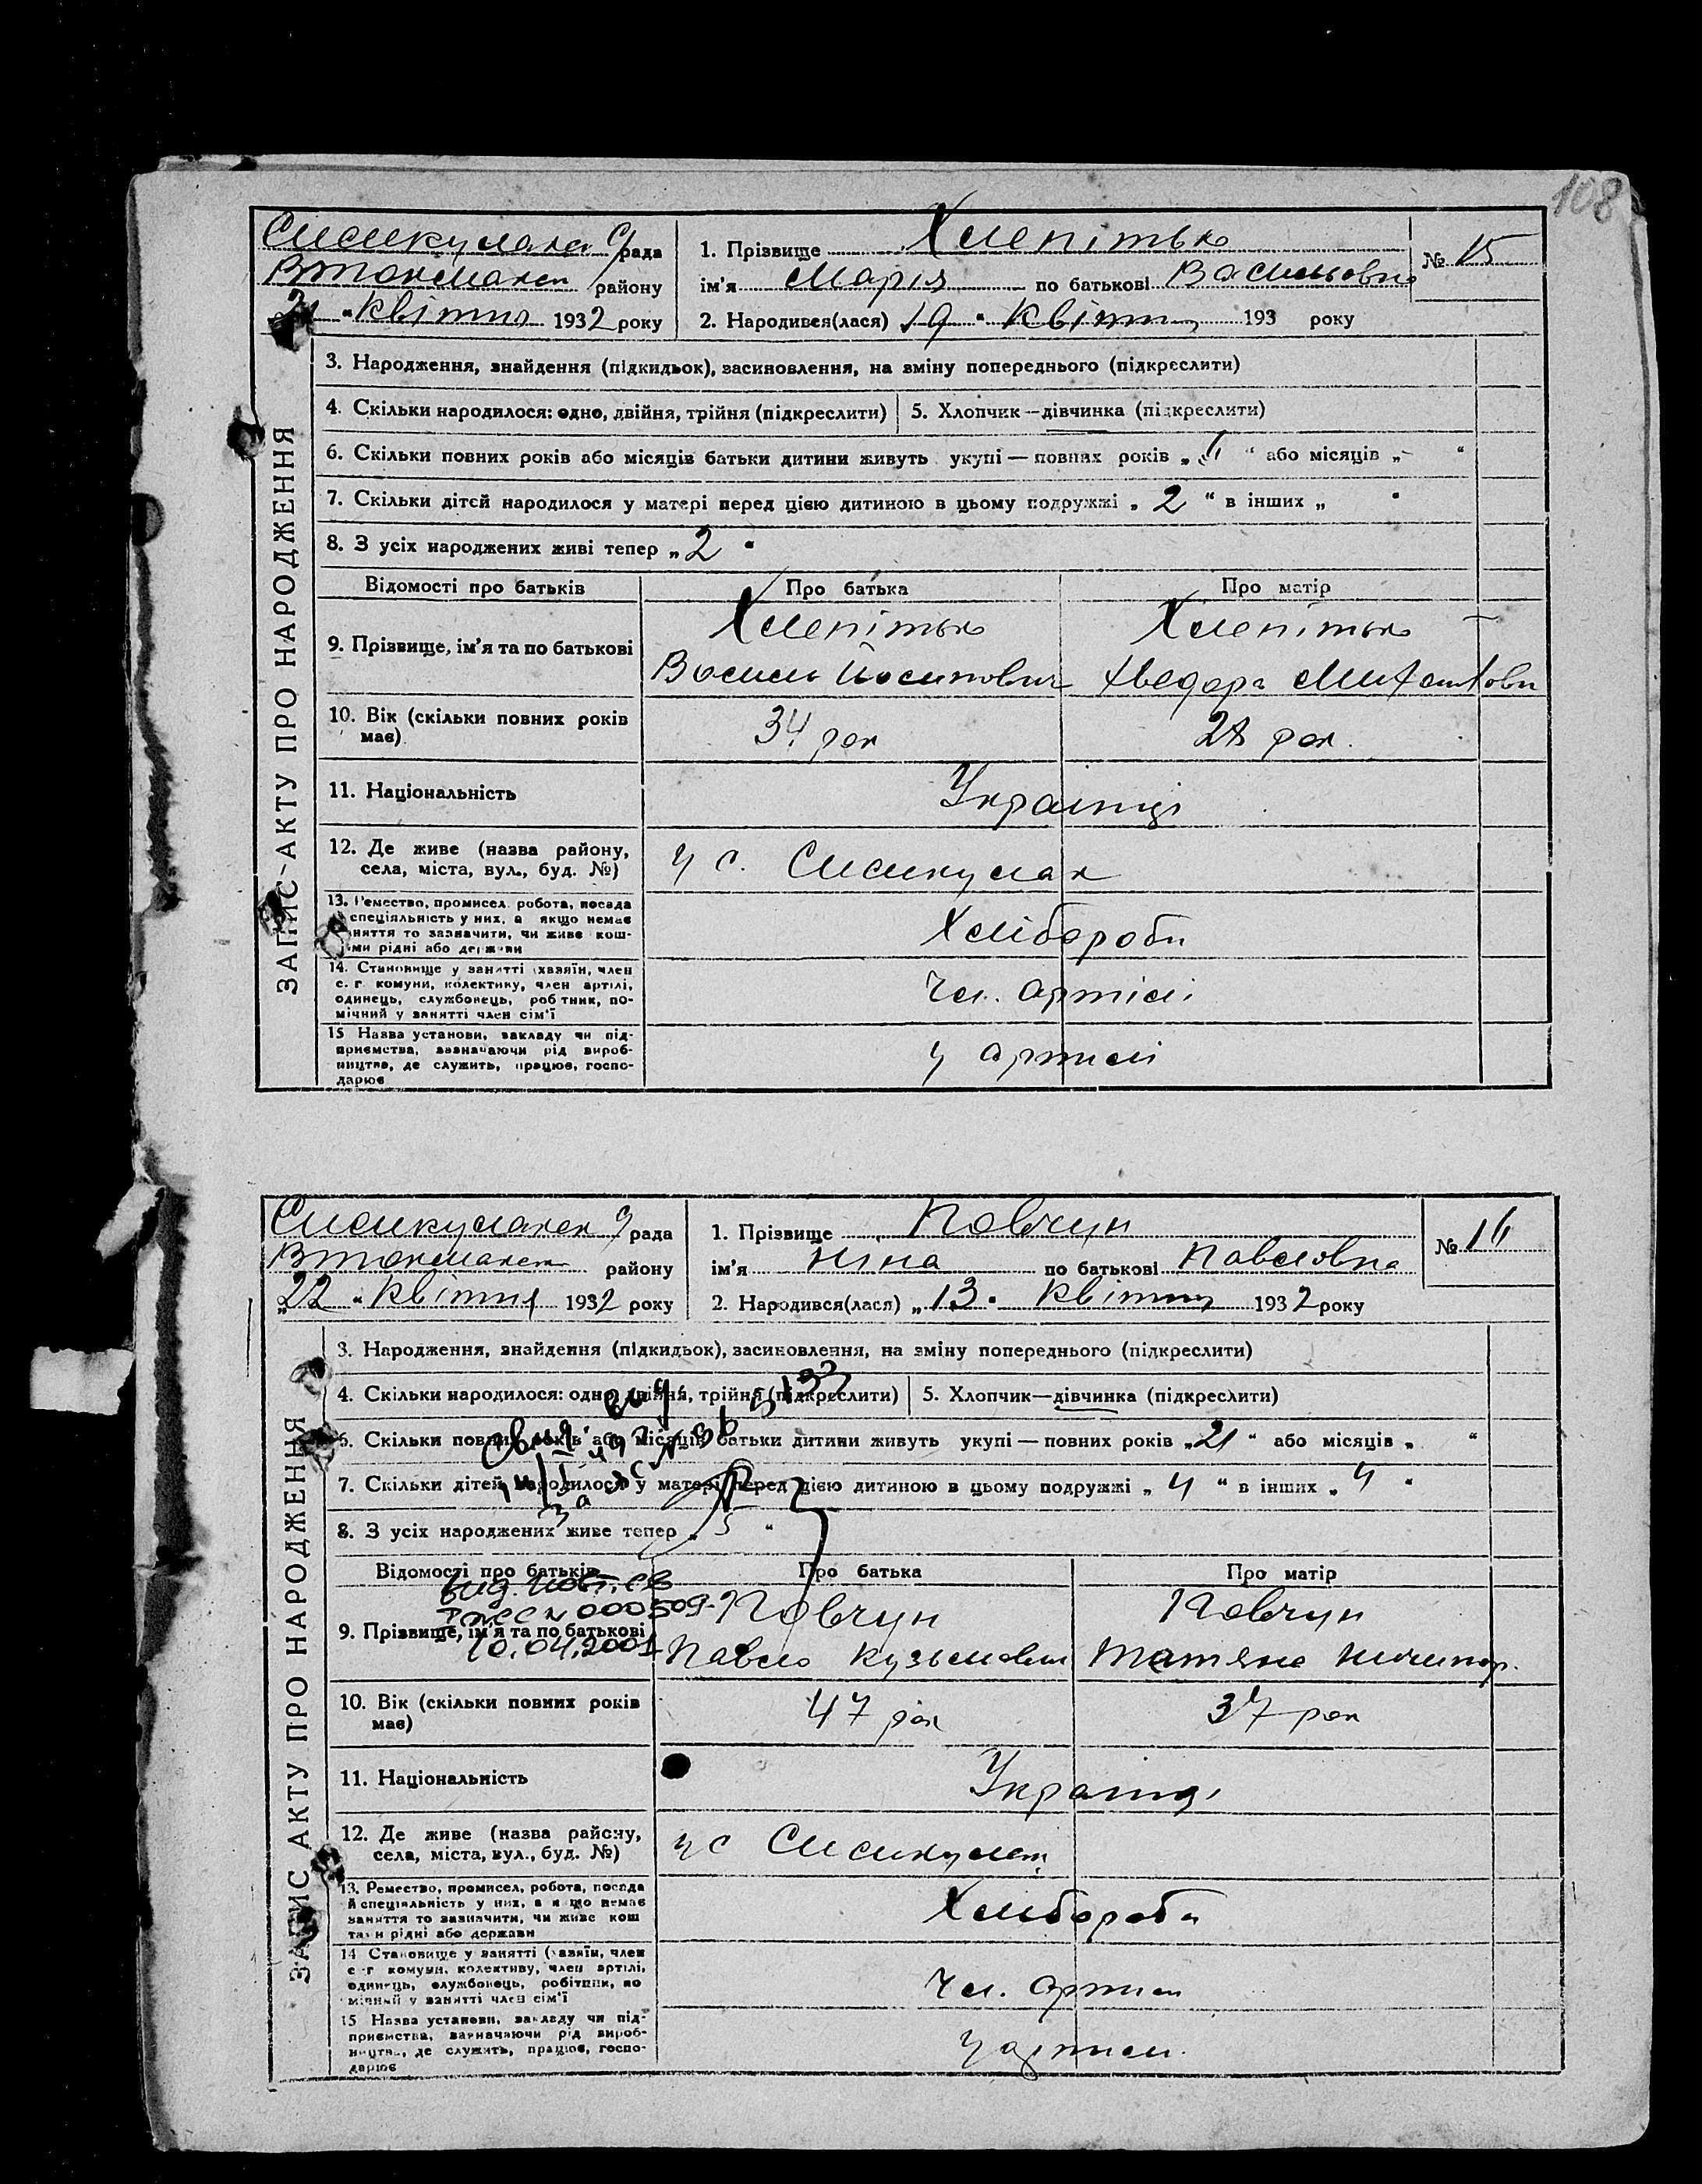 108
Сисикулака с/рада
ВТокмакск району
21 " Квітня 1932 року
1. Прізвище Хлепітько
ім'я Марія по батькові Васильовна
2. Народився(лася) 19 " Квітня 193 року
№ 15
ЗАПИС-АКТУ ПРО НАРОДЖЕННЯ
3. Народження, знайдення (підкидьок), засиновлення, на зміну попереднього (підкреслити)
4. Скільки народилося: одно, двійня, трійня (підкреслити) 5. Хлопчик—дівчинка (підкреслити)
6. Скільки повних років або місяців батьки дитини живуть укупі — повних років „ " або місяців „- "
7. Скільки дітей народилося у матері перед цією дитиною в цьому подружжі „ 2 " в інших „ "
8. З усіх народжених живі тепер „ 2 "
Відомості про батьків Про батька Про матір
9. Прізвище, ім'я та по батькові
Хлепітько Хлепітько
Василь Йосипович Хведора Михайлови
10. Вік (скільки повних років має)
34 рок 28 рок.
11. Національність
Українці
12. Де живе (назва району,
села, міста, вул., буд. №)
у с. Сисикулак
13. Ремество, промисел, робота, посада
спеціяльність у них, а якщо немає
няття то зазначити, чи живе кош-
ми рідні або держави
Хлібороби
14. Становище у занятті (хазяїн, член
с. г. комуни, колективу, член артілі,
одинець, службовець, робітник, по-
мічний у занятті член сім'ї
Чл. артілі
15 Назва установи, закладу чи під-
приємства, зазначаючи рід вироб-
ництва, де служить, працює, госпо-
дарює
у артилі
Сисикулакск с/рада
ВТокмакск району
„22 " Квітня 1932 року
1. Прізвище Ковчун
ім'я Ніна по батькові Павловна
2. Народився(лася) „13 " Квітня 1932 року
№ 16
ЗАПИС АКТУ ПРО НАРОДЖЕННЯ
3. Народження, знайдення (підкидьок), засиновлення, на зміну попереднього (підкреслити)
4. Скільки народилося: одно, двійня, трійня (підкреслити) 5. Хлопчик—дівчинка (підкреслити)
6. Скільки повних років або місяців батьки дитини живуть укупі — повних років „21 " або місяців „ "
7. Скільки дітей народилося у матері перед цією дитиною в цьому подружжі „ 4 " в інших „ 4 "
8. З усіх народжених живе тепер „ 5 "
Відомості про батьків Про батька Про матір
вид. повт. св
N 000509
10.04.2001
9. Прізвище, ім'я та по батькові
Ковчун Ковчун
Павло Кузьмович Татяна Ничипор.
10. Вік (скільки повних років має)
47 рок 37 рок
11. Національність
Українці
12. Де живе (назва району,
села, міста, вул., буд. №)
у с Сисикулац
13. Ремество, промисел, робота, посада
й спеціяльність у них, а якщо немає
заняття то зазначити, чи живе кош
тами рідні або держави
Хлібороби
14 Становище у занятті (хазяїн, член
с г комуни, колективу, член артілі,
одинець, службовець, робітник, по
мічний у занятті член сім'ї
Чл. артили
15 Назва установи, закладу чи під-
приємства, зазначаючи рід вироб-
ництва, де служить, працює, госпо-
дарює
у артили.